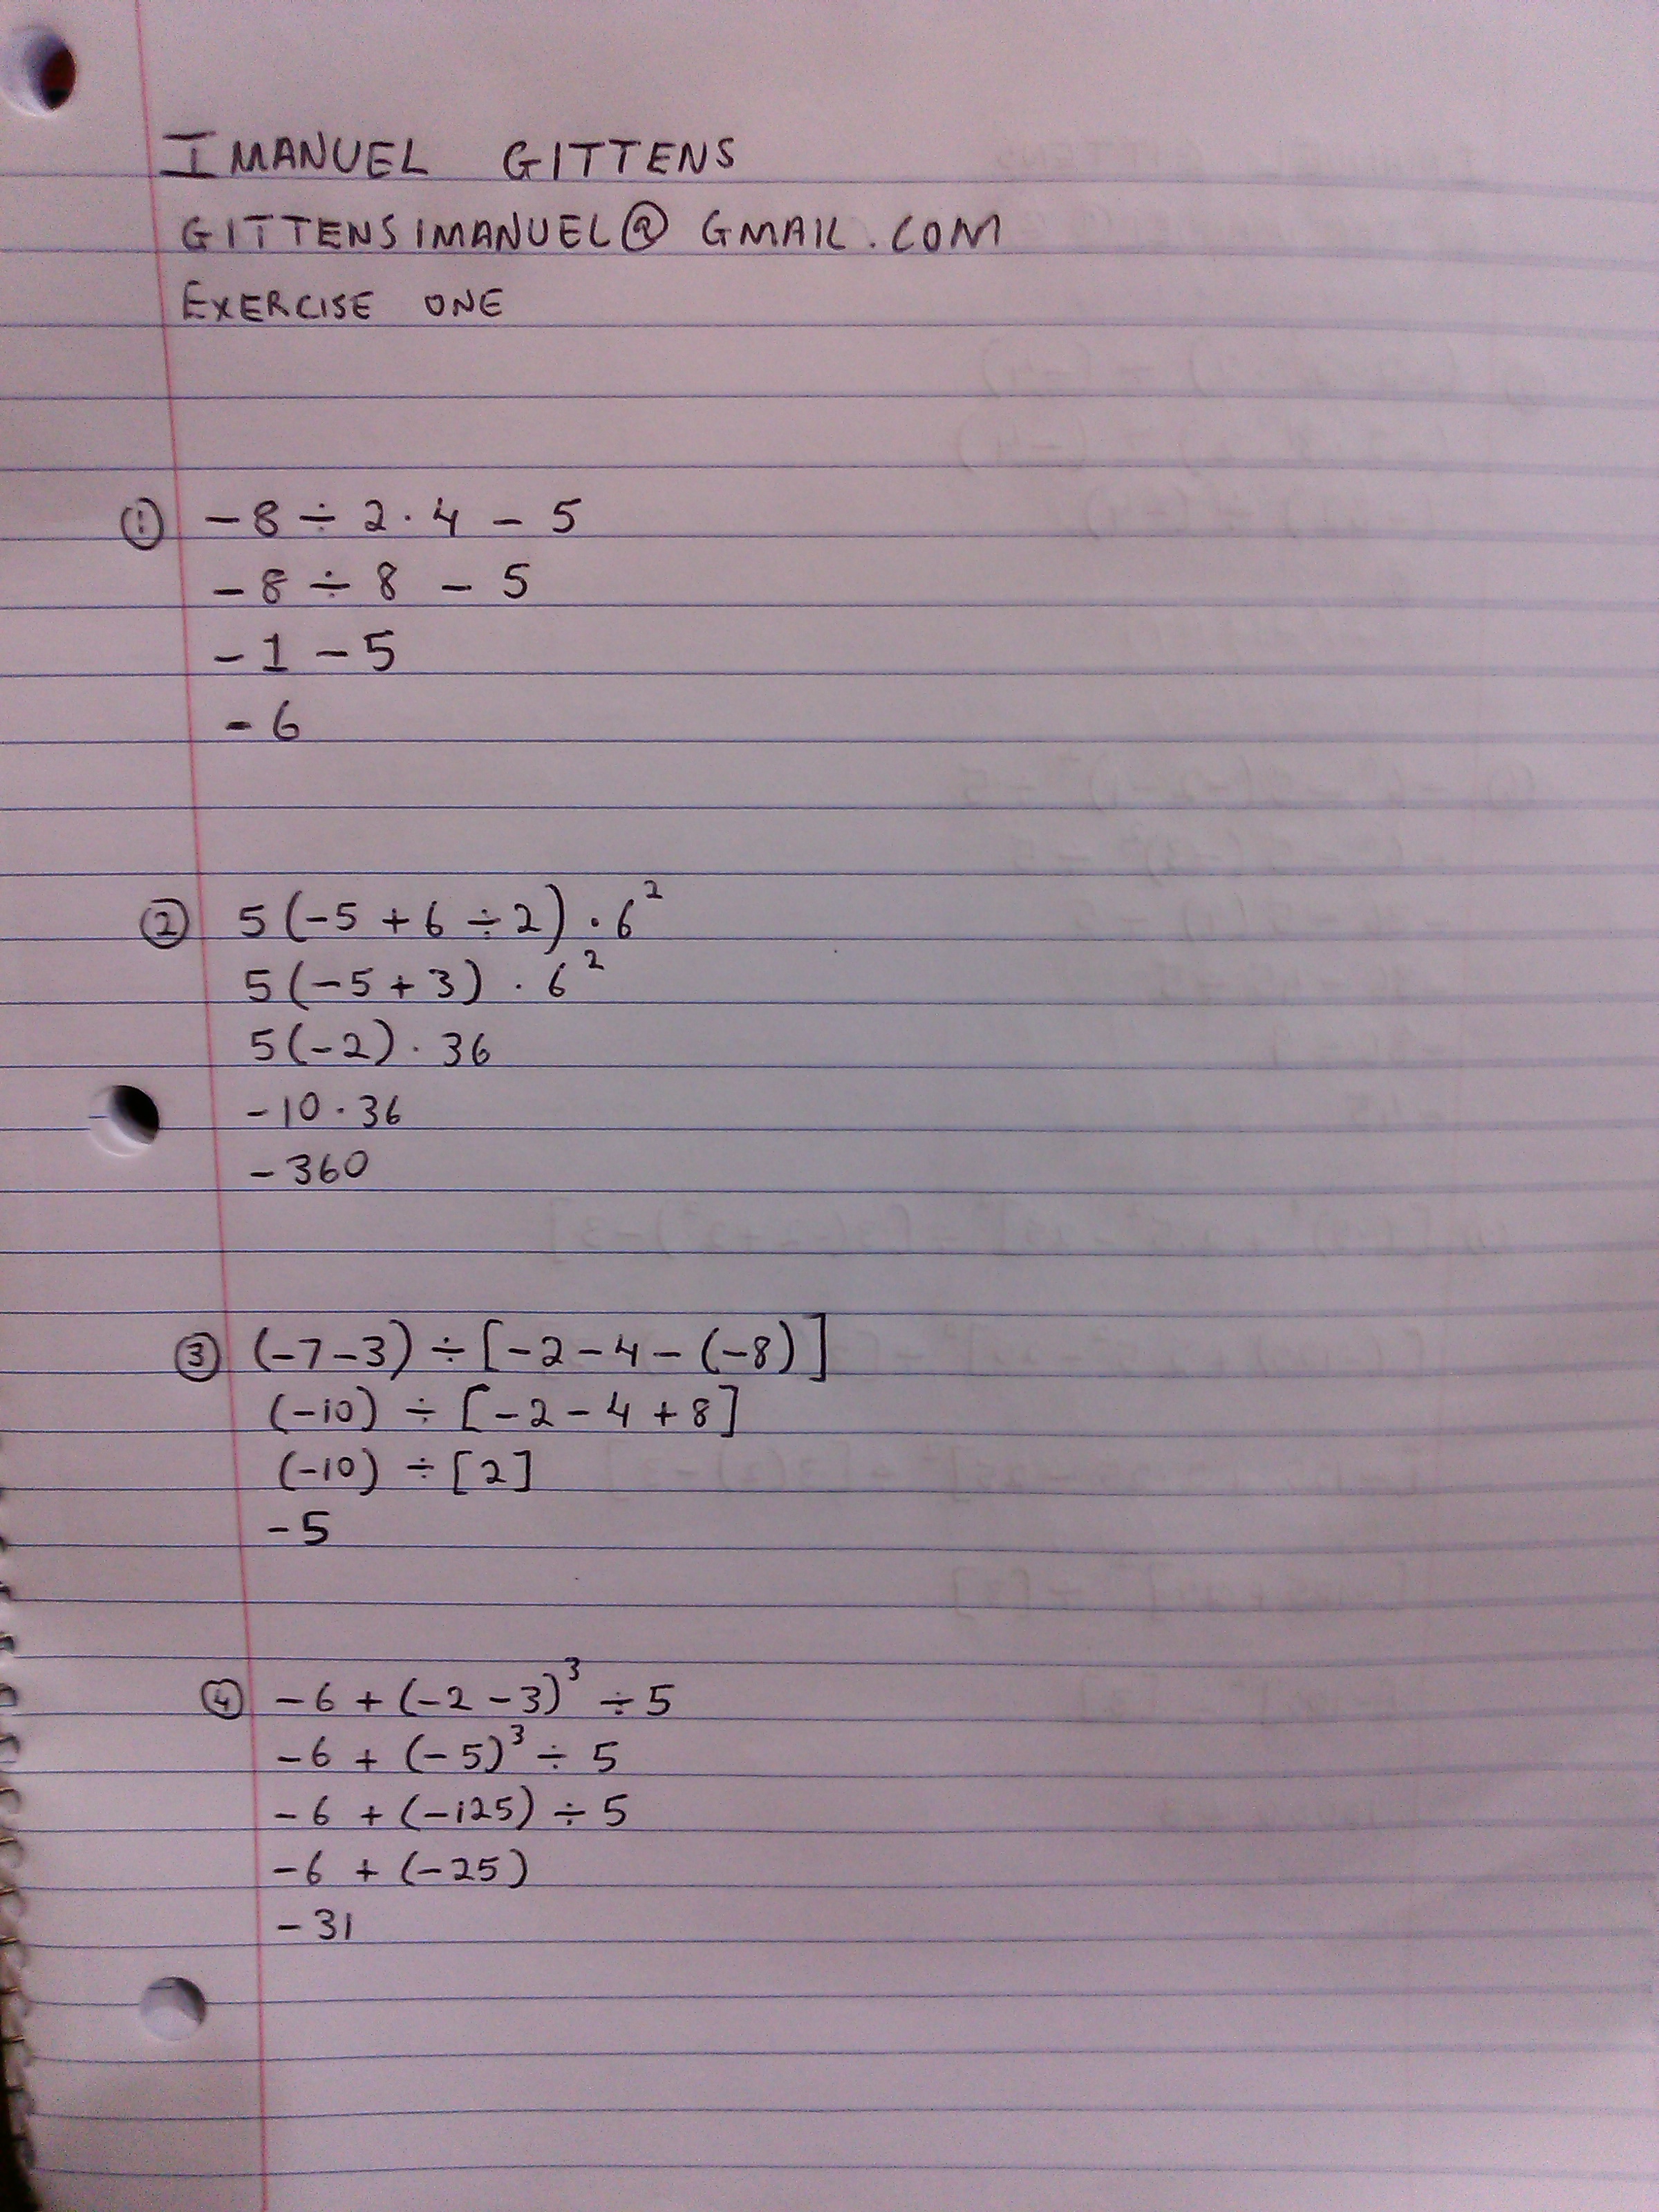 IMANUEL GITTENS
GITTENSIMANUEL@GMAIL.COM
EXERCISE ONE
① -8 ÷ 2 · 4 - 5
-8 ÷ 8 - 5
-1 - 5
-6
② 5(-5 + 6 ÷ 2) · 6²
5(-5 + 3) · 6²
5(-2) · 36
-10 · 36
-360
③ (-7 - 3) ÷ [-2 - 4 - (-8)]
(-10) ÷ [-2 - 4 + 8]
(-10) ÷ [2]
-5
④ -6 + (-2 - 3)³ ÷ 5
-6 + (-5)³ ÷ 5
-6 + (-125) ÷ 5
-6 + (-25)
-31